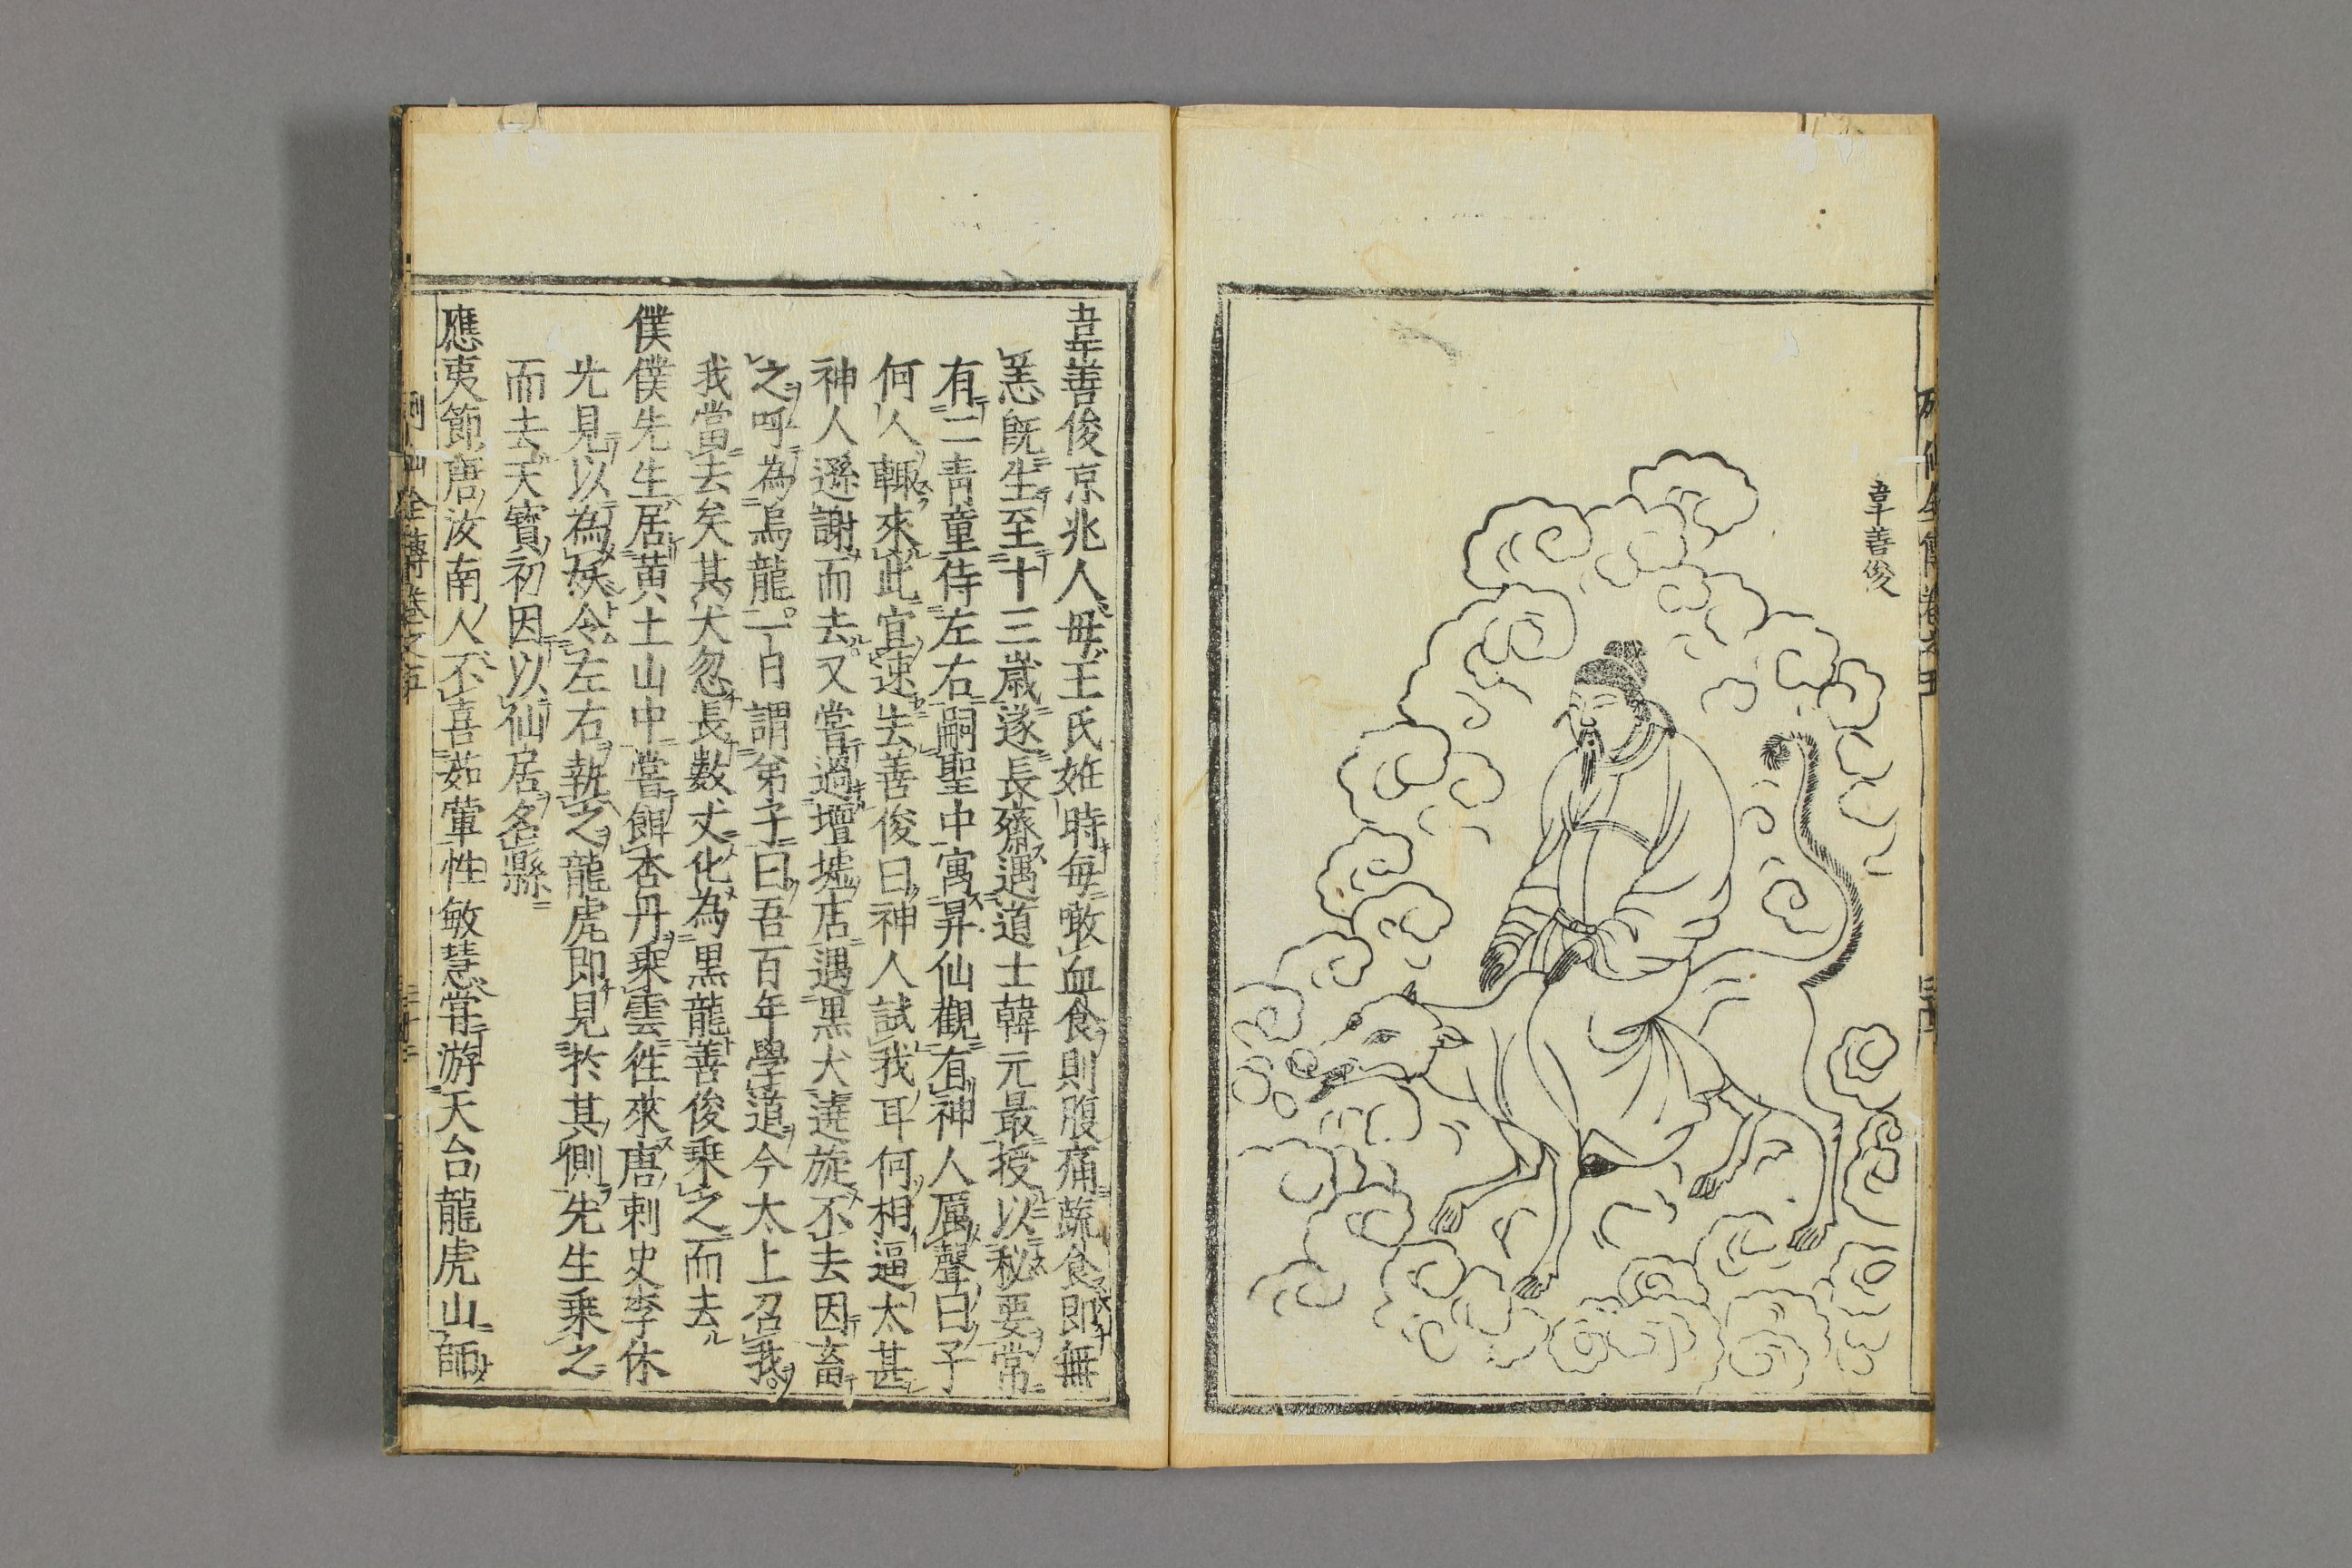 韋善俊
韋善俊京兆人毋王氏姙時每噉血食則腹痛蔬食即無
恙既生至十三歲遂長齋遇道士韓元最授以秘要常
有二青童侍左右嗣聖中寓昇仙觀有神人厲聲曰子
何人輙來此宜速去善俊曰神人試我耳何相逼太甚
神人遜謝而去又嘗過壇墟店遇黑犬遶旋不去因畜
之呼為烏龍一日謂弟子曰吾百年學道今太上召我
我當去矣其犬忽長數丈化為黑龍善俊乗之而去
僕僕先生居黄土山中嘗餌杏丹乘雲徃來唐刺史李休
光見以為妖令左右執之龍虎即見扵其側先生乗之
而去天寳初因以仙居名縣
應夷節唐汝南人不喜茹葷性敏慧常游天台龍虎山師
列仙全傳卷之五